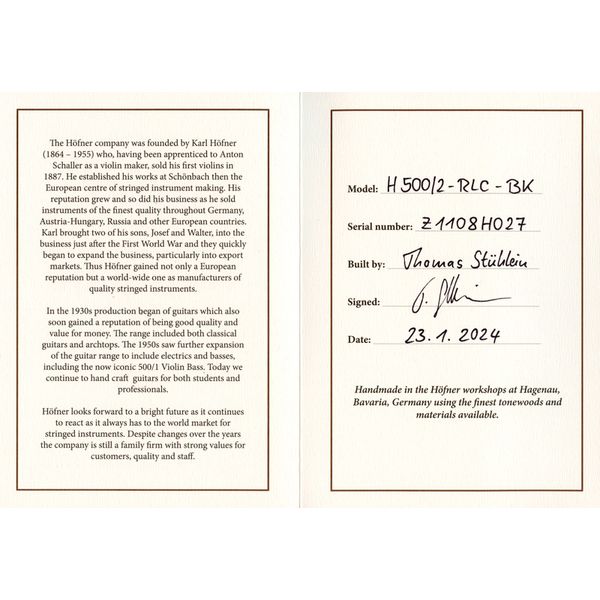 The Höfner company was founded by Karl Höfner
(1864 – 1955) who, having been apprenticed to Anton
Schaller as a violin maker, sold his first violins in
1887. He established his works at Schönbach then the
European centre of stringed instrument making. His
reputation grew and so did his business as he sold
instruments of the finest quality throughout Germany,
Austria-Hungary, Russia and other European countries.
Karl brought two of his sons, Josef and Walter, into the
business just after the First World War and they quickly
began to expand the business, particularly into export
markets. Thus Höfner gained not only a European
reputation but a world-wide one as manufacturers of
quality stringed instruments.
In the 1930s production began of guitars which also
soon gained a reputation of being good quality and
value for money. The range included both classical
guitars and archtops. The 1950s saw further expansion
of the guitar range to include electrics and basses,
including the now iconic 500/1 Violin Bass. Today we
continue to hand craft guitars for both students and
professionals.
Höfner looks forward to a bright future as it continues
to react as it always has to the world market for
stringed instruments. Despite changes over the years
the company is still a family firm with strong values for
customers, quality and staff.
Model: H500/2-RLC-BK
Serial number: Z1108H027
Built by: Thomas Stühlein
Signed:
Date: 23.1.2024
Handmade in the Höfner workshops at Hagenau,
Bavaria, Germany using the finest tonewoods and
materials available.